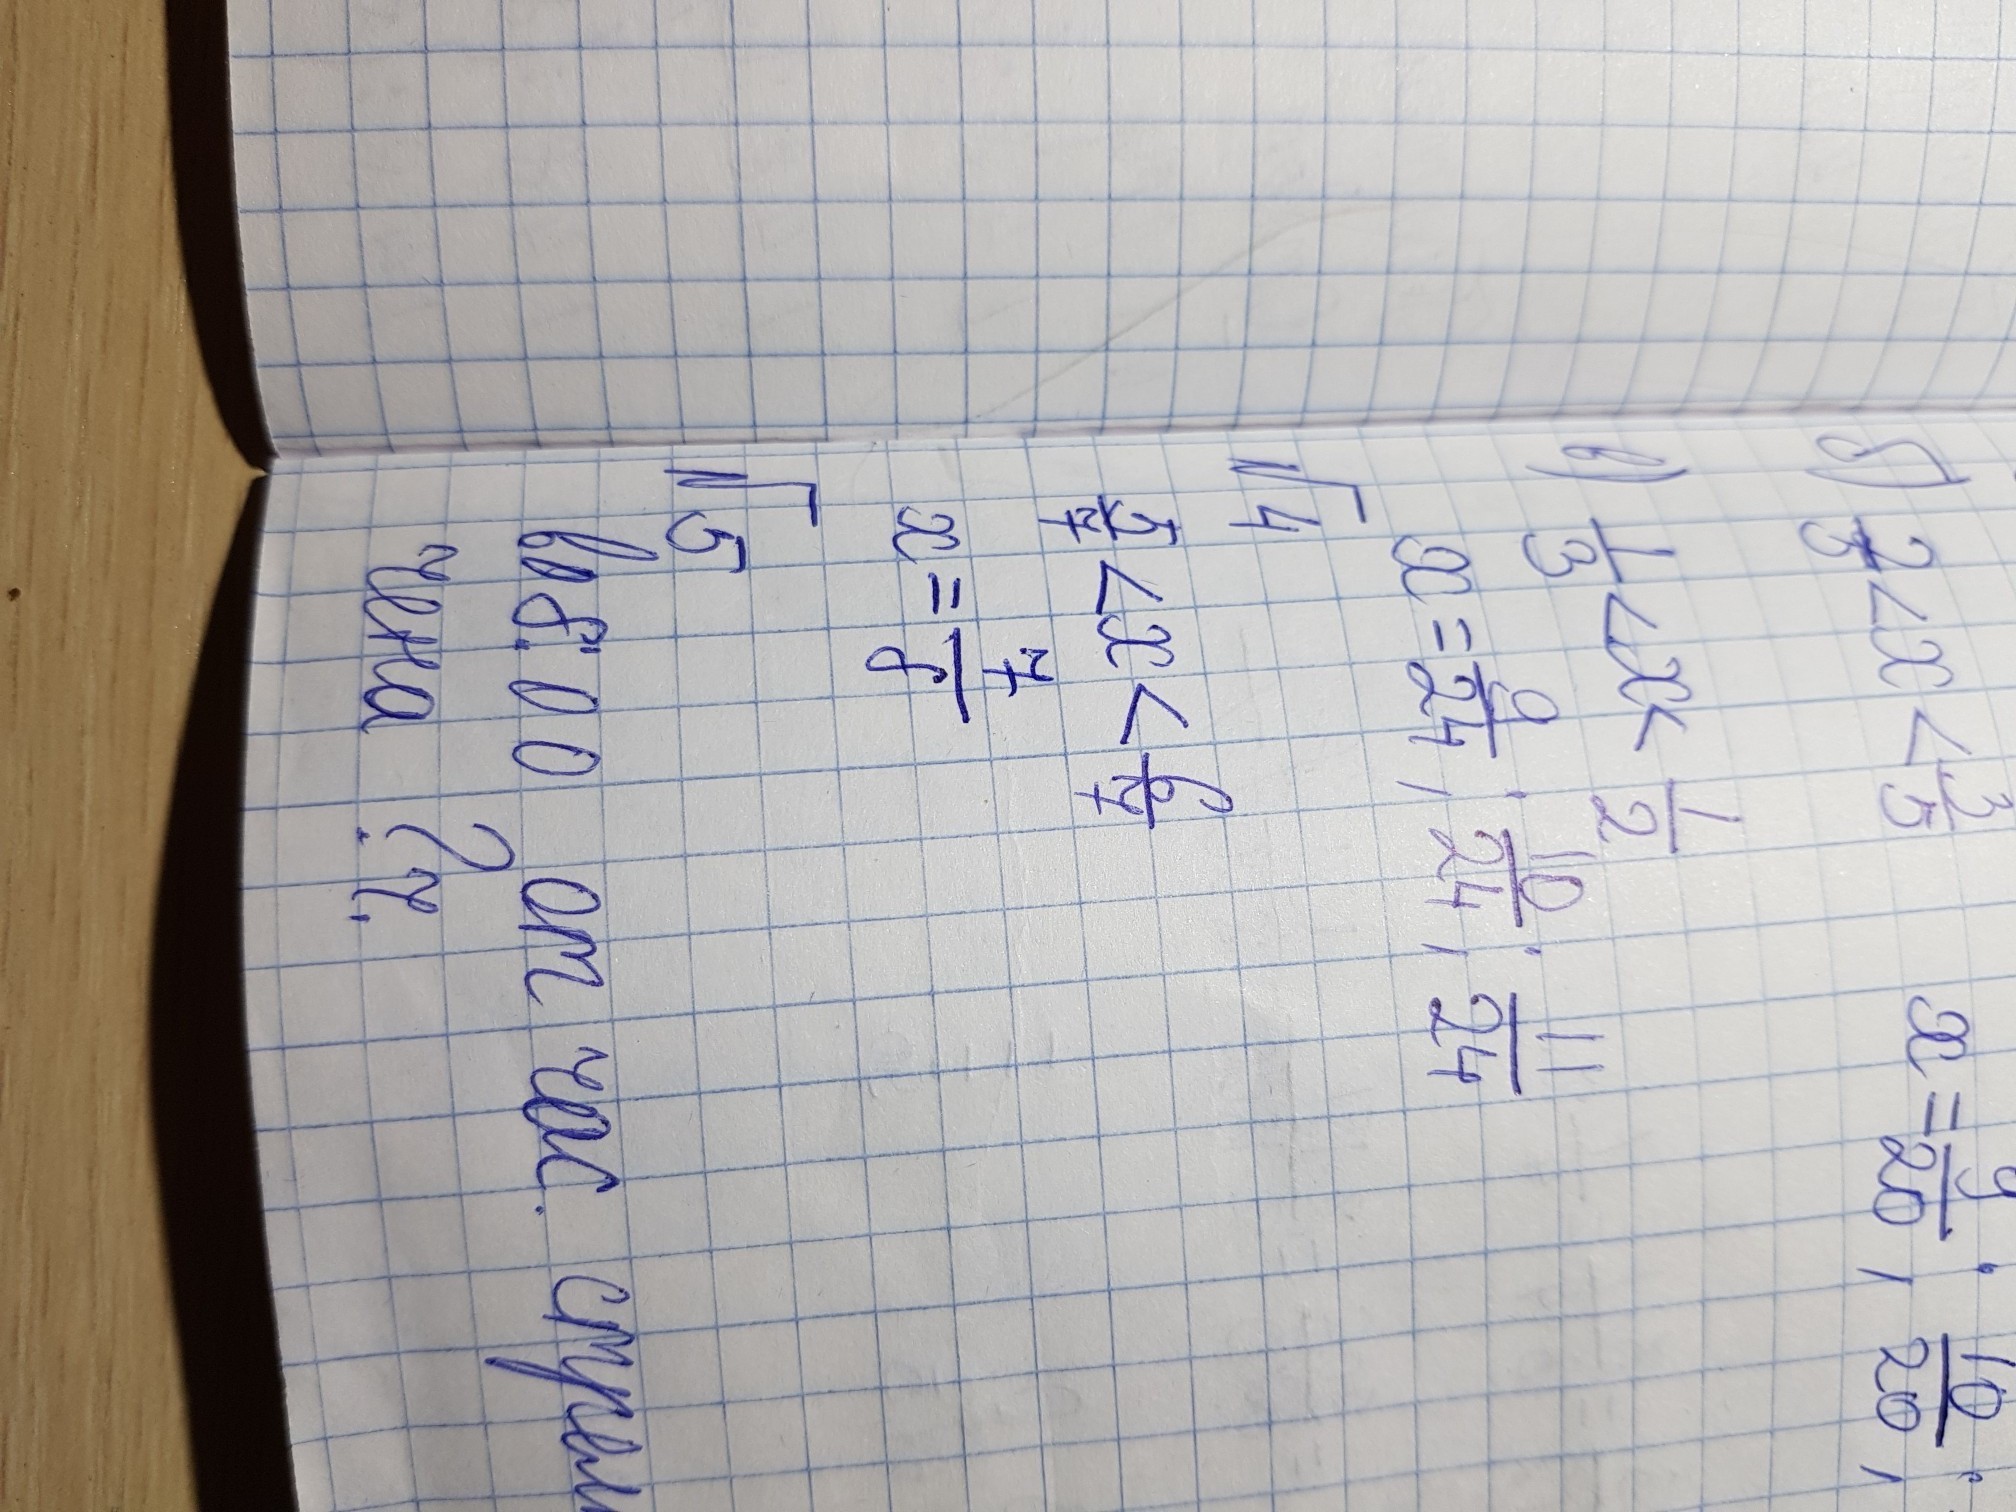 б) 2/5 < x < 3/5 x = 9/20; 10/20;
в) 1/3 < x < 1/2
x = 9/24; 10/24; 11/24
№4
5/7 < x < 6/7
x = 7/8
№5
в 8.00 от час.
? ч.